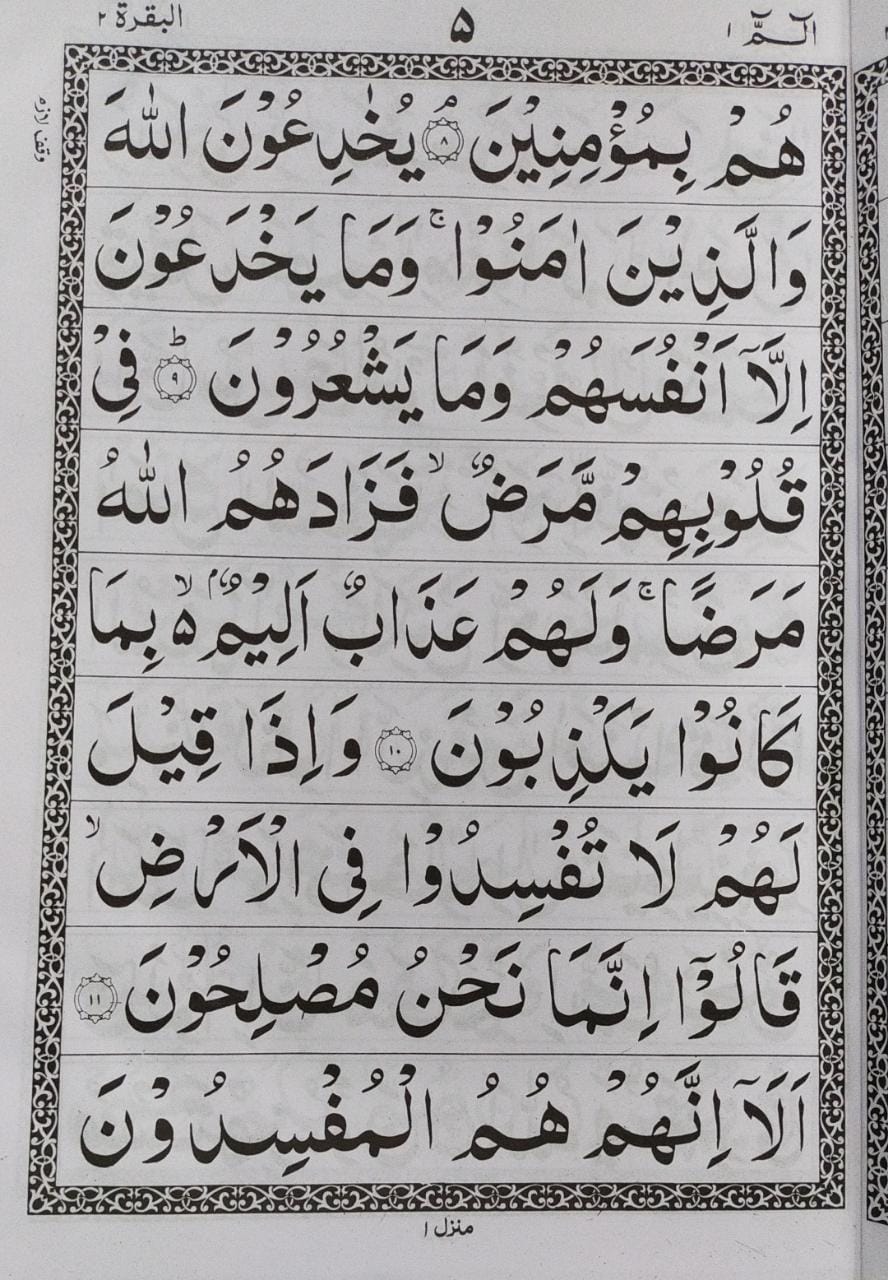 الٓـمّٓ ١ ٥ البقرة ٢
وقف لازم
هُمْ بِمُؤْمِنِيْنَ ۘ‏﴿٨﴾ يُخٰدِعُوْنَ اللّٰهَ
وَالَّذِيْنَ اٰمَنُوْا ۚ وَمَا يَخْدَعُوْنَ
اِلَّاۤ اَنْفُسَهُمْ وَمَا يَشْعُرُوْنَ ؕ‏﴿٩﴾ فِيْ
قُلُوْبِهِمْ مَّرَضٌ ۙ فَزَادَهُمُ اللّٰهُ
مَرَضًا ۚ وَلَهُمْ عَذَابٌ اَلِيْمٌۢ ۵ۙ بِمَا
كَانُوْا يَكْذِبُوْنَ ﴿١٠﴾ وَاِذَا قِيْلَ
لَهُمْ لَا تُفْسِدُوْا فِي الْاَرْضِ ۙ
قَالُوْۤا اِنَّمَا نَحْنُ مُصْلِحُوْنَ ﴿١١﴾
اَلَاۤ اِنَّهُمْ هُمُ الْمُفْسِدُوْنَ
منزل ١